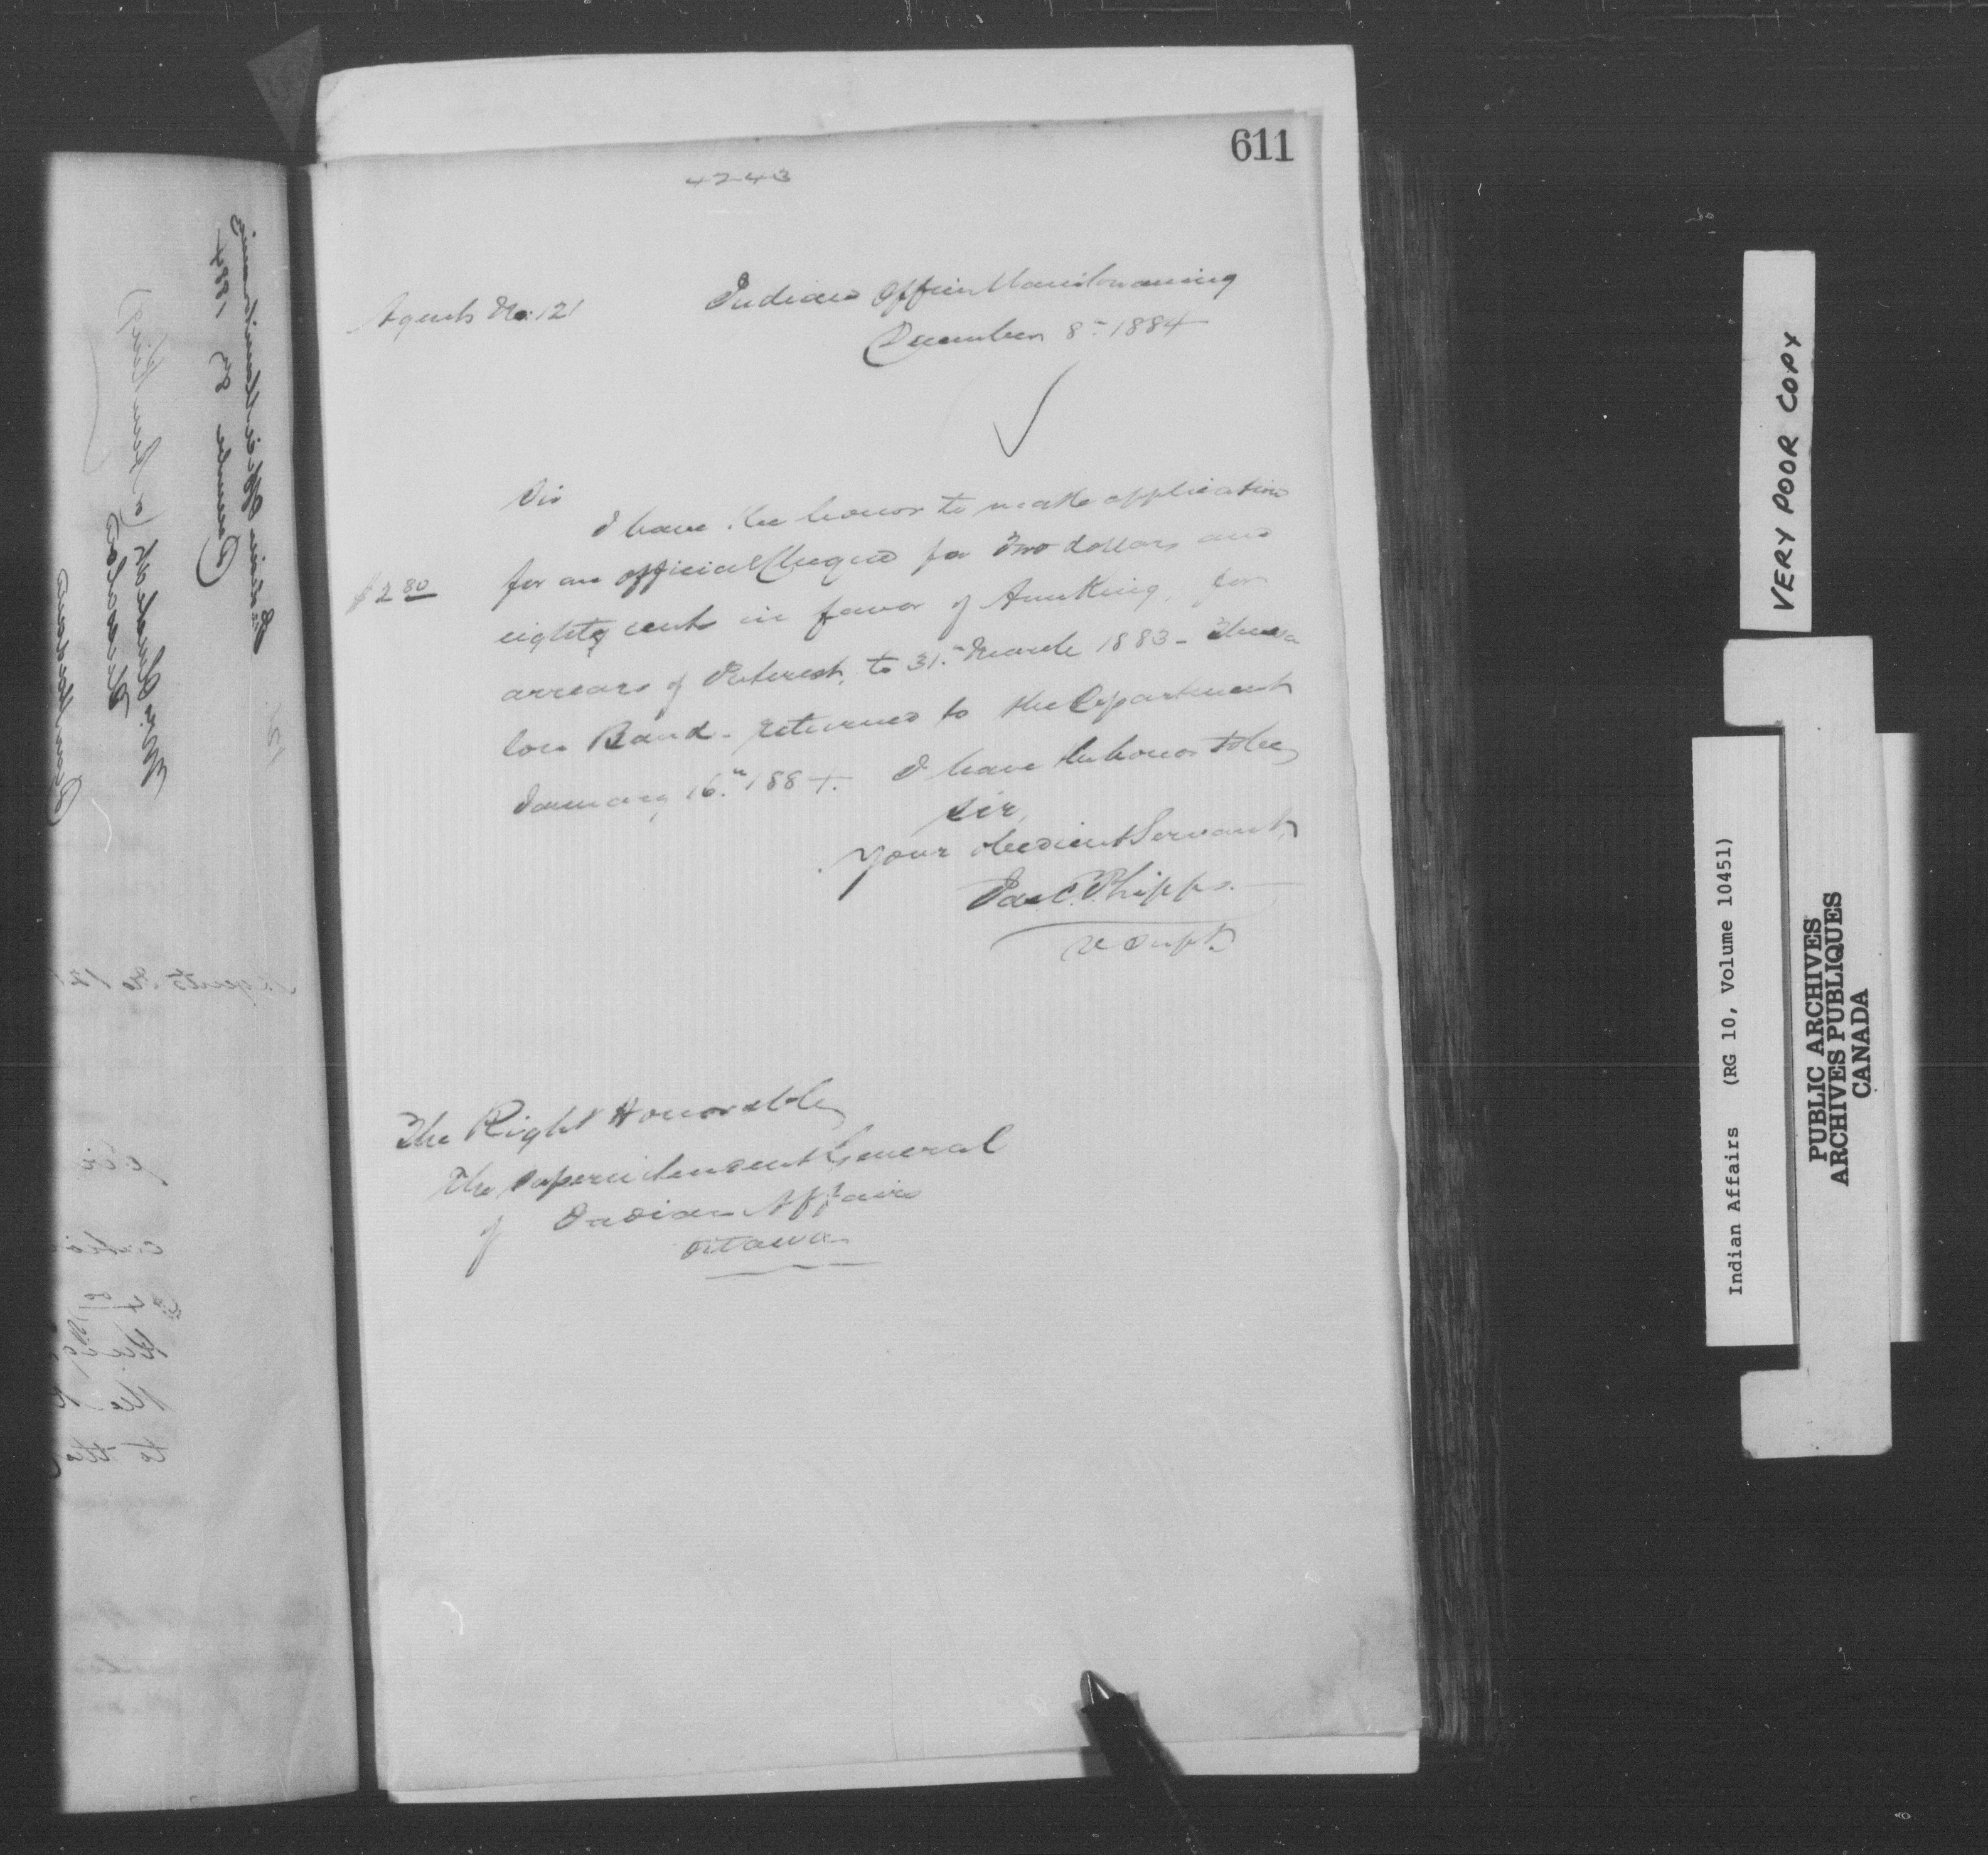 611
4243
Agents No. 121
Indian Office Manitowaning
December 8th 1884
Sir
I have the honor to make application
for an official Cheque for Two dollars and
$2.80
eighty cents in favor of Ann King, for
arrears of Interest, to 31st March 1883 - Thessa
lon Band - returned to the Department
January 16th 1884. I have the honor to be,
Sir,
Your obedient Servant,
Jas. C. Phipps.
V. Supt.
The Right Honorable
The Superintendent General
of Indian Affairs
Ottawa
VERY POOR COPY
Indian Affairs (RG 10, Volume 10451)
PUBLIC ARCHIVES
ARCHIVES PUBLIQUES
CANADA